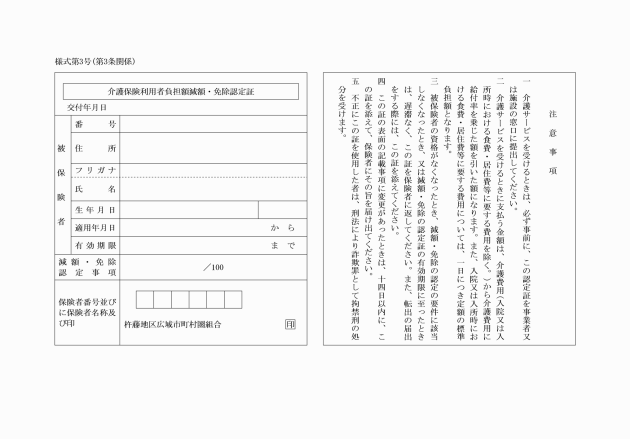 様式第3号(第3条関係)
介護保険利用者負担額減額・免除認定証
交付年月日
被保険者
番号
住所
フリガナ
氏名
生年月日
適用年月日
から
有効期限
まで
減額・免除
認定事項
/100
保険者番号並び
に保険者名称及
び印
杵藤地区広域市町村圏組合
印
注意事項
一 介護サービスを受けるときは、必ず事前に、この認定証を事業者又
は施設の窓口に提出してください。
二 介護サービスを受けるときに支払う金額は、介護費用(入院又は入
所時における食費・居住費等に要する費用を除く。)から介護費用に
給付率を乗じた額を引いた額になります。また、入院又は入所時にお
ける食費・居住費等に要する費用については、一日につき定額の標準
負担額となります。
三 被保険者の資格がなくなったとき、減額・免除の認定の要件に該当
しなくなったとき、又は減額・免除の認定証の有効期限に至ったとき
は、遅滞なく、この証を保険者に返してください。また、転出の届出
をする際には、この証を添えてください。
四 この証の表面の記載事項に変更があったときは、十四日以内に、こ
の証を添えて、保険者にその旨を届け出てください。
五 不正にこの証を使用した者は、刑法により詐欺罪として拘禁刑の処
分を受けます。